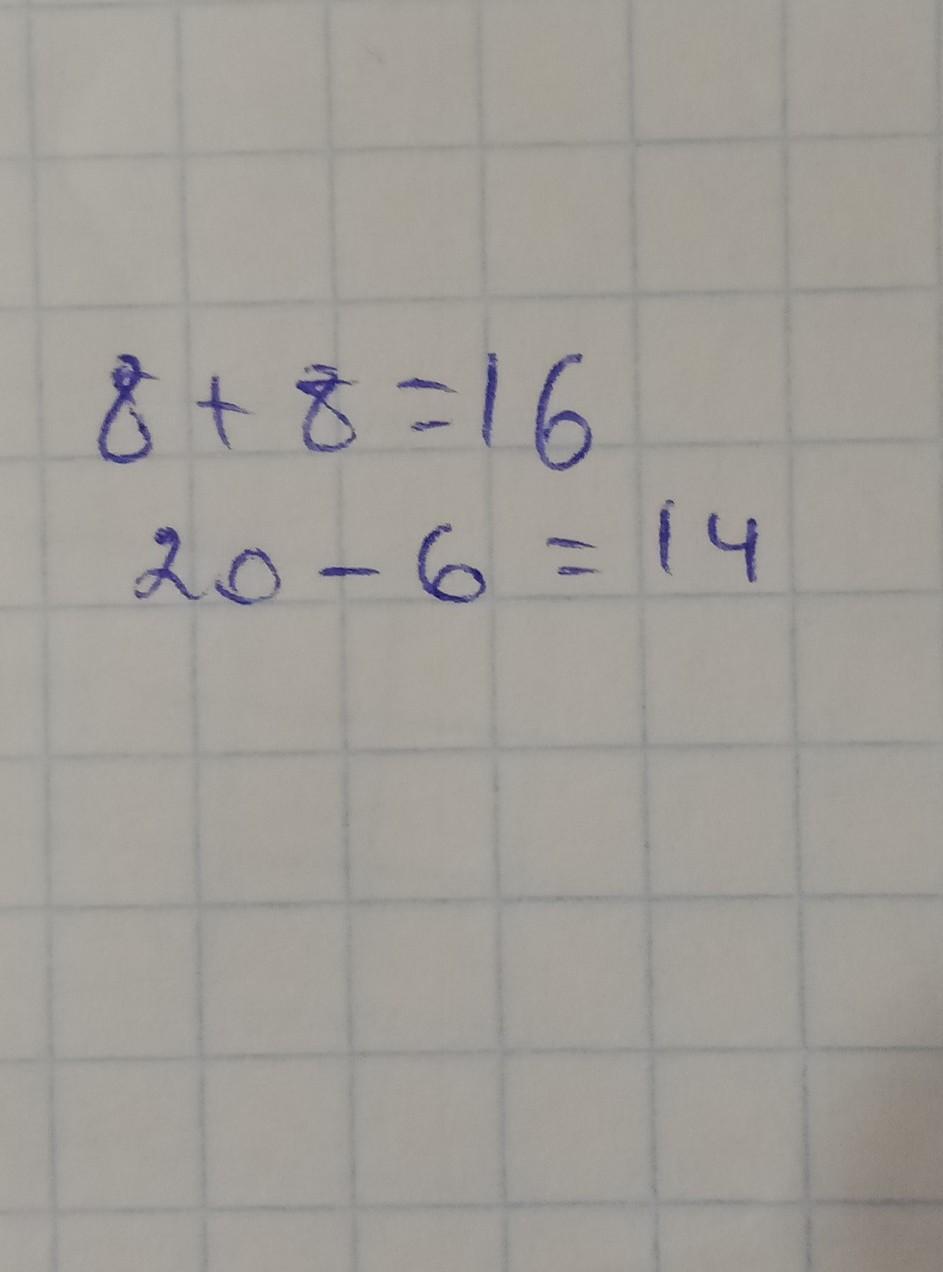 8 + 8 = 16
20 - 6 = 14